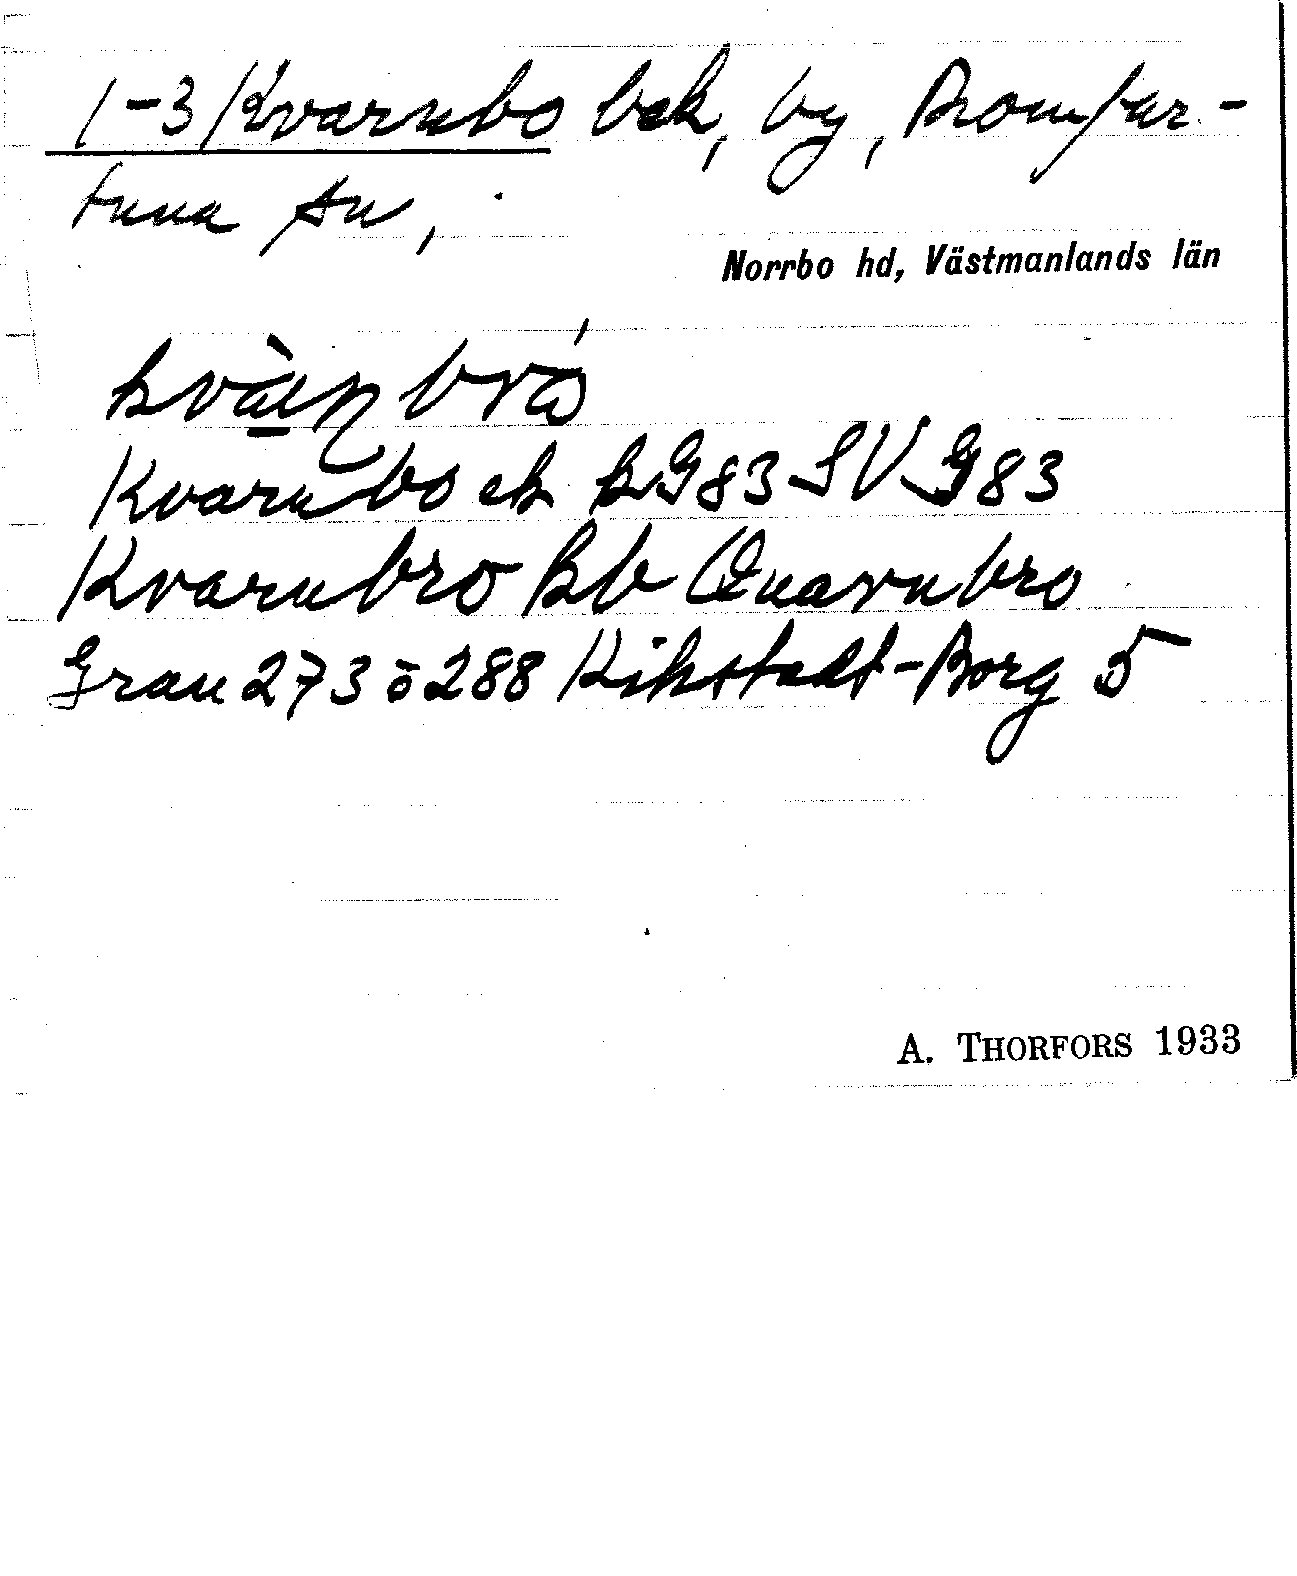 1-3 Kvarnbo bek, by, Romfar-
tuna sn,
Norrbo hd, Västmanlands län
Kvarnbo ek kG83 SV G83
Kvarnbro Bb Quarnbro
Grau 273 ö 288 Kihstedt-Borg 5
A. THORFORS 1933